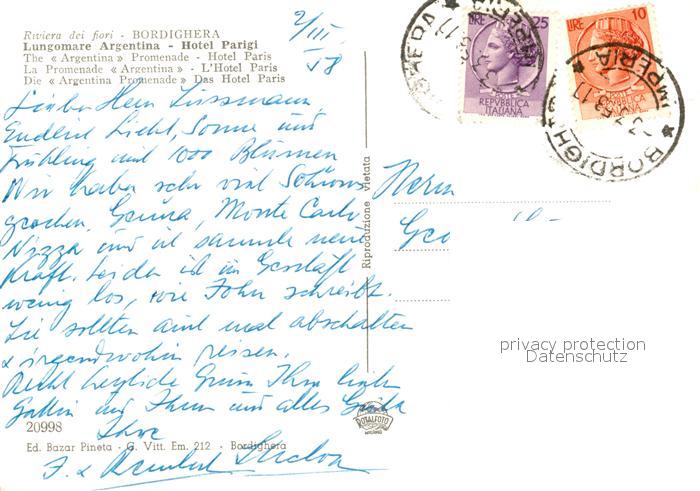 Riviera dei fiori - BORDIGHERA
Lungomare Argentina - Hotel Parigi
The « Argentina » Promenade - Hotel Paris
La Promenade « Argentina » - L'Hotel Paris
Die « Argentina Promenade » Das Hotel Paris
2/III.
58
Lieber Herr
Endlich Licht, Sonne und
Frühling und 1000 Blumen
Wir haben sehr viel Schönes
gesehen, Genua, Monte Carlo
Nizza und ich sammle neue
Kraft. Leider ist im Geschäft
wenig los, wie John schreibt.
Sie sollten auch mal abschalten
& irgendwohin reisen.
Recht herzliche Grüsse Ihrer lieben
Gattin und Ihnen und alles Gute
Ihre
20998
Ed. Bazar Pineta - G. Vitt. Em. 212 - Bordighera
Riproduzione vietata
TOTALFOTO
MILANO
LIRE 25
POSTE
REPVBBLICA
ITALIANA
LIRE 10
POSTE
REPVBBLICA
ITALIANA
BORDIGHERA
IMPERIA
Herrn
10-
privacy protection
Datenschutz